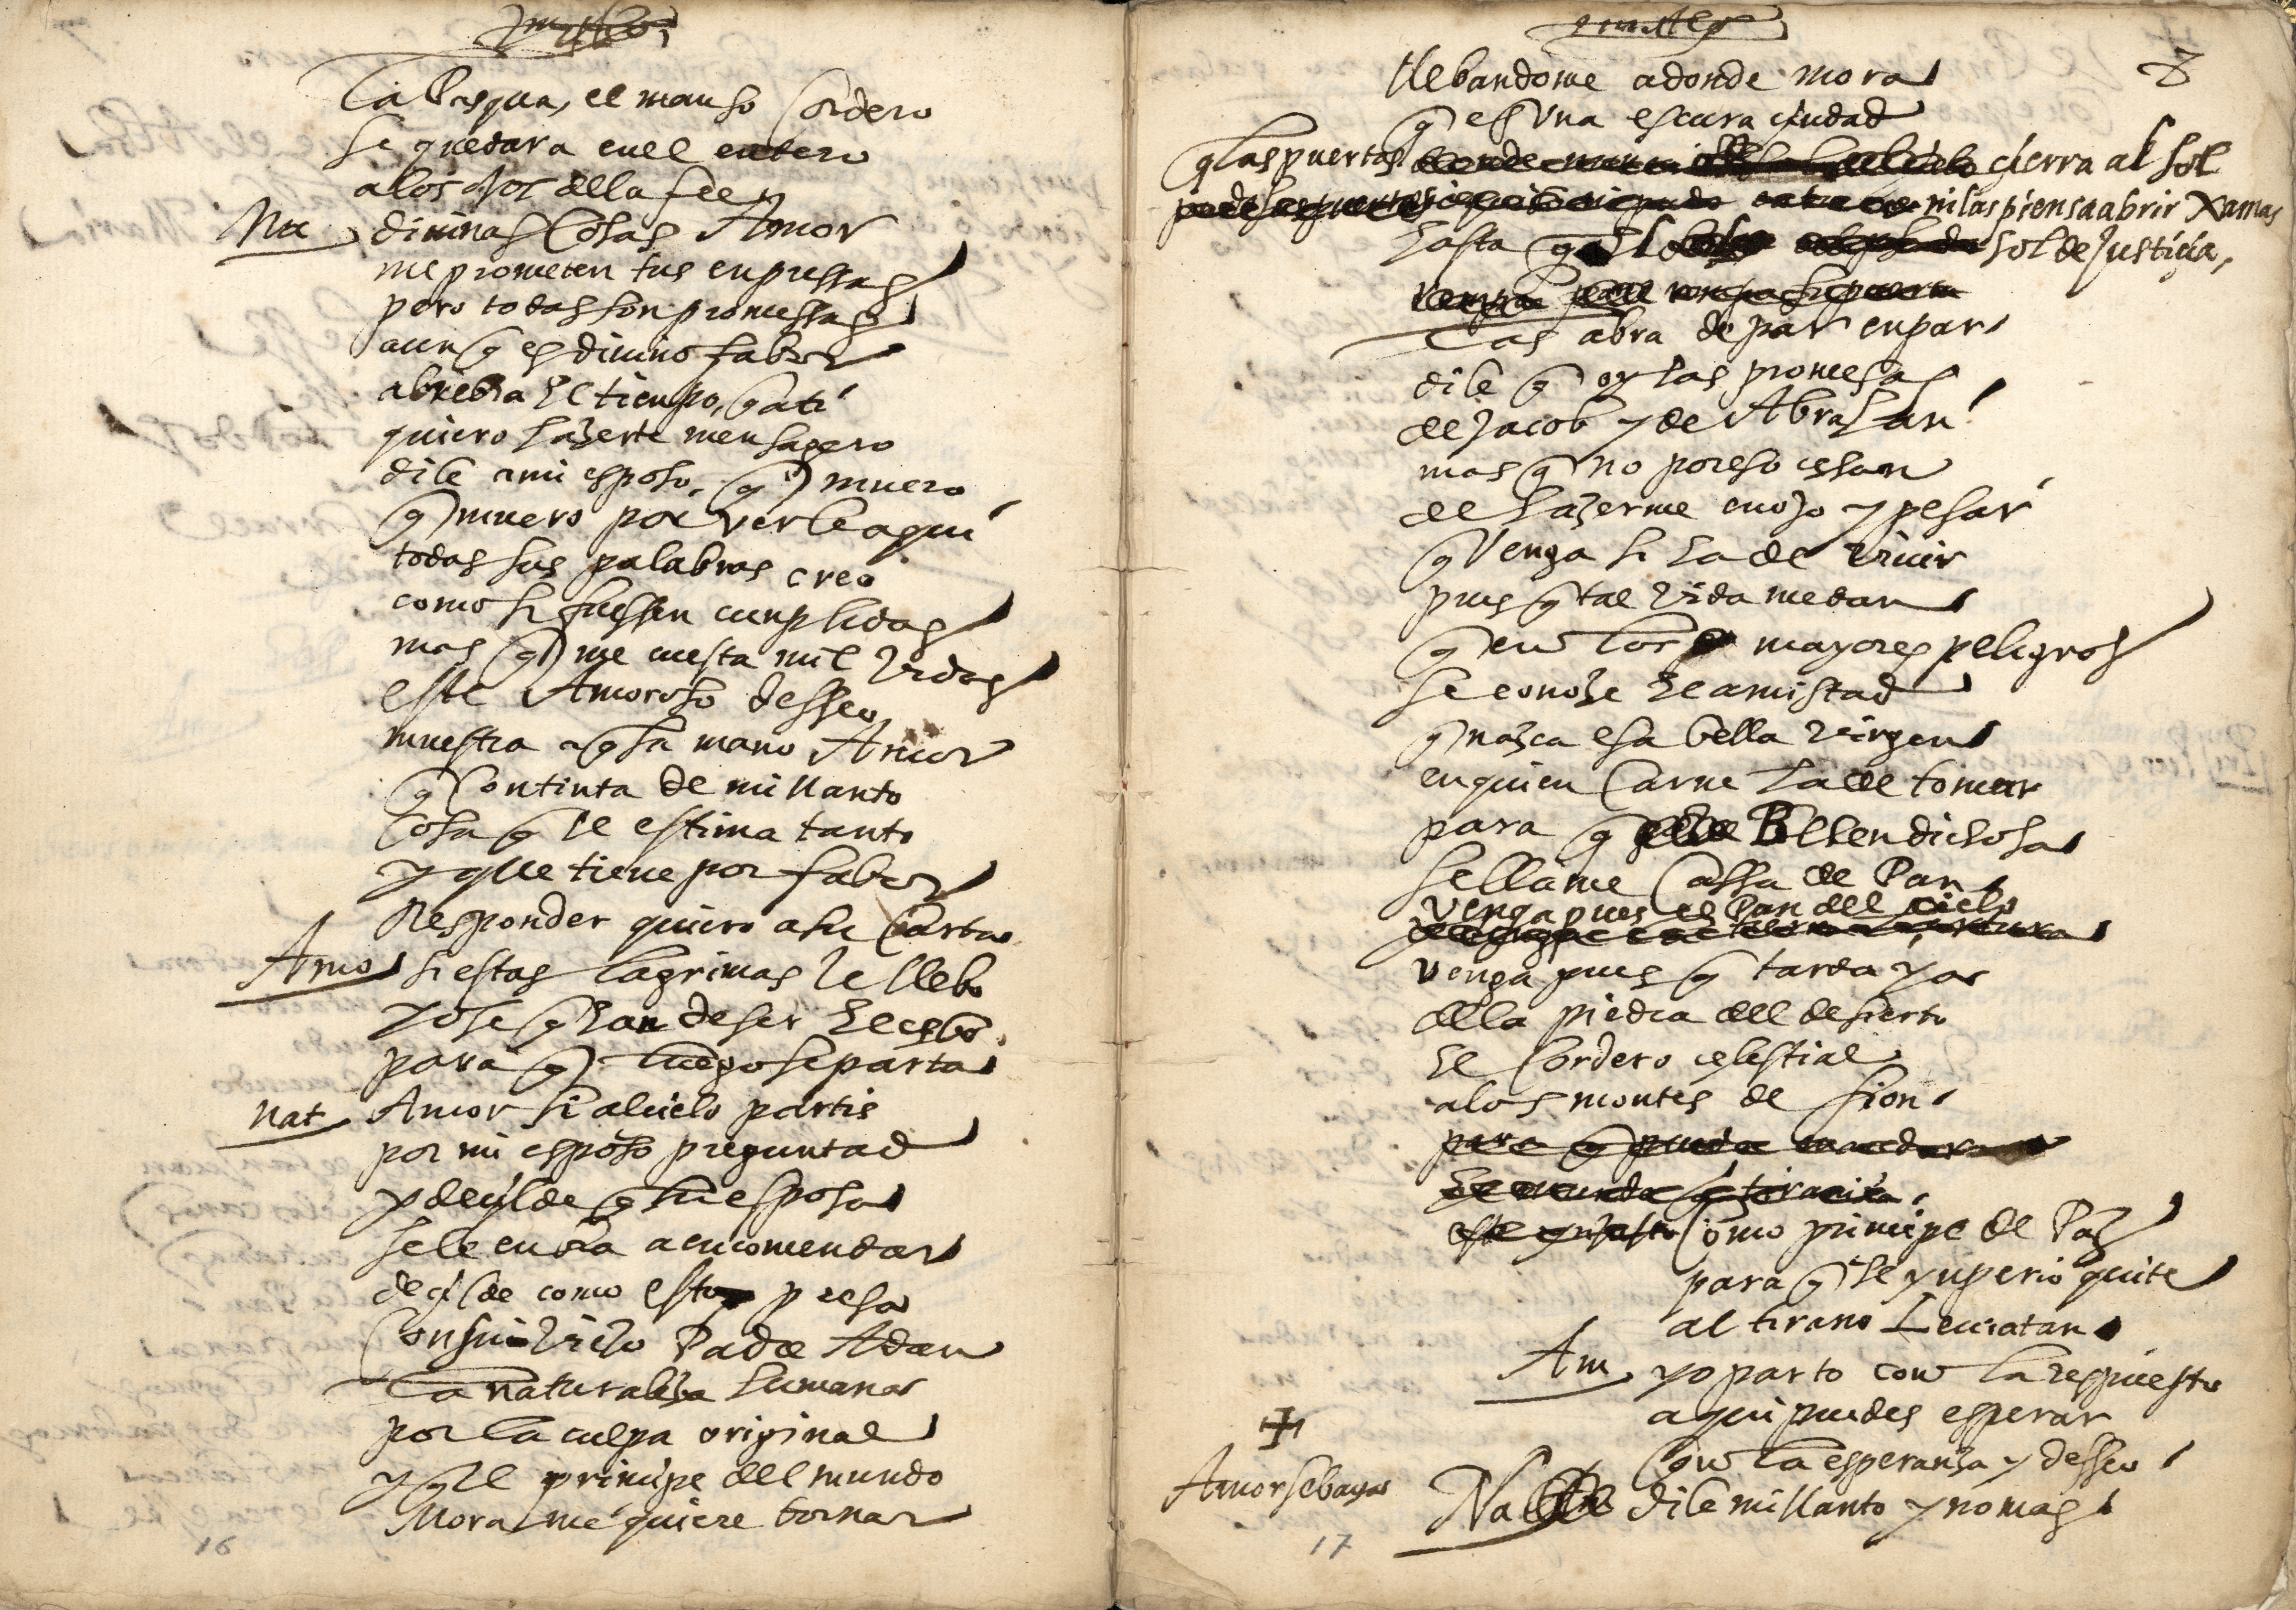 La Pasqua, el manso Cordero
se quedara en el entero
a los ojos de la fee
Na diuinas cosas Amor
me prometen tus enpressas
pero todas son promessas
aunq es diuino fabor
abrebia el tiempo, q a ti
quiero hazerte mensagero
dile a mi esposo, q muero
q muero por verle aqui
todas sus palabras creo
como si fuessen cunplidas
mas q me cuesta mil vidas
este Amoroso desseo
muestra a q su mano Amor
q con tinta de mi llanto
cosa q el estima tanto
y que tiene por fabor
Responder quiero a su Carta
Amo si estas lagrimas le llebo
yo se q han de ser el cebo
para q luego se parta
Nat Amor si al cielo partis
por mi esposo preguntad
y decilde q su esposa
se le enbia a encomendar
decilde como estoy presa
Con su viejo Padre Adan
la naturaleza humana
por la culpa original
y q el principe del mundo
Mora me quiere tornar
16
llebandome adonde mora
q es vna escura ciudad
q las puertas cierra al sol
ni las piensa abrir Xamas
hasta q el sol de Justicia,
las abra de par en par
dile q oy las promesas
de Jacob y de Abrahan
mas q no por eso cesan
de hazerme enojo y pesar
q Venga si ha de viuir
pues q tal vida me dan
q en los mayores peligros
se conoze el amistad
q nazca esa bella virgen
en quien Carne ha de tomar
para q Belen dichosa
se llame Cassa de Pan
venga pues el Pan del cielo
venga pues q tarda ya
de la piedra del desierto
el Cordero celestial
a los montes de sion
Como principe de Paz
para q el ynperio quite
al tirano Leuiatan
Am yo parto con la respuesta
aqui puedes esperar
con la esperanza y desseo
Amor se baya
Na dile mi llanto y no mas
17